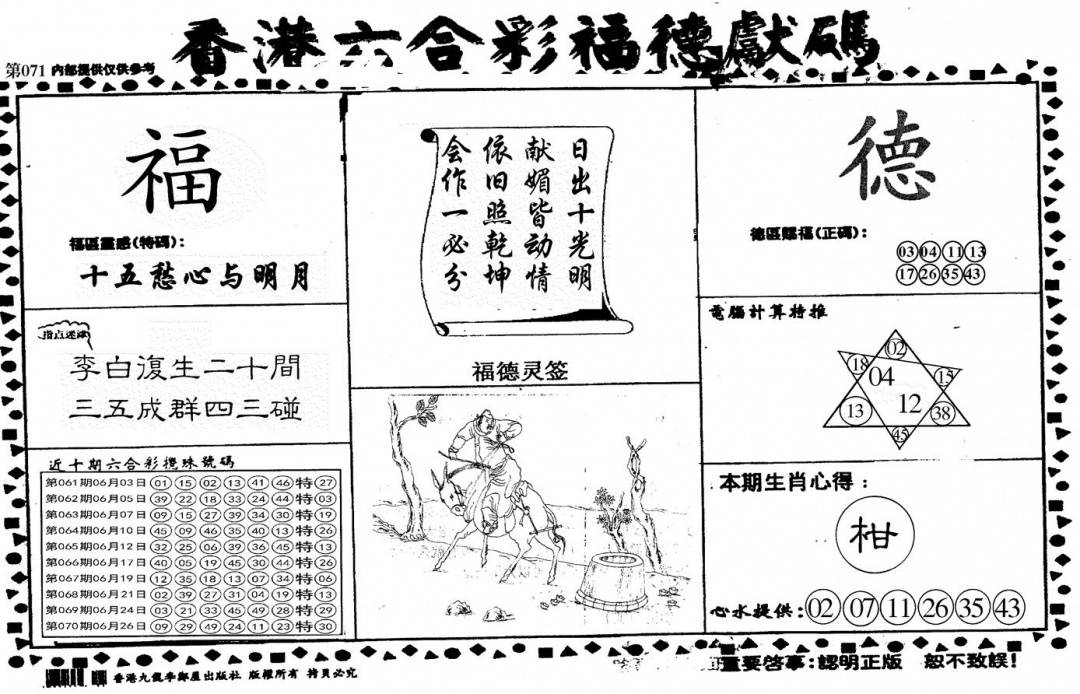 香港六合彩福德獻碼
第071 內部提供仅供参考
福
福區靈感(特碼):
十五愁心与明月
指点迷津
李白復生二十間
三五成群四三碰
近十期六合彩攪珠號碼
第061期06月03日 01 15 02 13 41 46 特 27
第062期06月05日 39 22 18 33 24 44 特 03
第063期06月07日 09 15 27 39 34 30 特 19
第064期06月10日 45 09 46 35 40 13 特 26
第065期06月12日 32 25 06 39 36 45 特 13
第066期06月17日 40 05 19 45 30 44 特 26
第067期06月19日 12 35 18 13 07 34 特 06
第068期06月21日 02 39 27 31 04 19 特 13
第069期06月24日 03 21 33 45 49 28 特 29
第070期06月26日 09 29 49 24 11 23 特 30
日出十光明
献媚皆动情
依旧照乾坤
会作一必分
福德灵签
德
德區賜福(正碼):
03 04 11 13
17 26 35 43
電腦計算特推
02
18 04 15
13 12 38
45
本期生肖心得:
柑
心水提供: 02 07 11 26 35 43
香港九龍李鄭屋出版社 版權所有 拷貝必究
重要啓事:認明正版 恕不致誤!